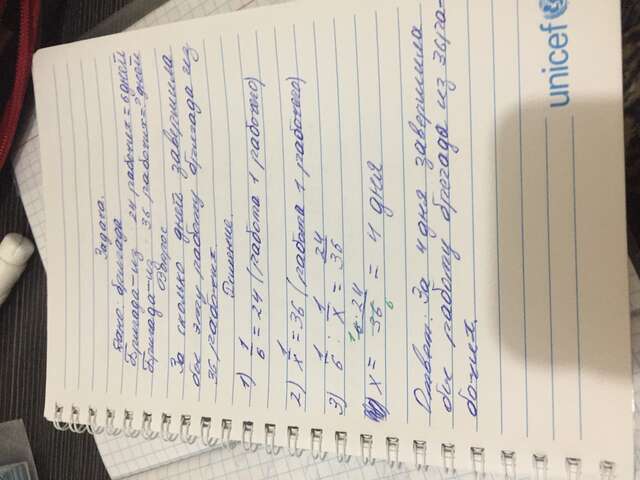 Задача.
Дано: бригада
Бригада-из 24 рабочих = 6 дней
Бригада-из 36 рабочих = ? дней
Вопрос
За сколько дней завершила
бы эту работу бригада из
36 рабочих.
Решение.
1) 1/6 = 24 (работа 1 рабочего)
2) 1/x = 36 (работа 1 рабочего)
3) 1/6 : 1/x = 24/36
x = 6·24/36 = 4 дня
Ответ: За 4 дня завершила
бы работу брегада из 36 ра-
бочих.
unicef